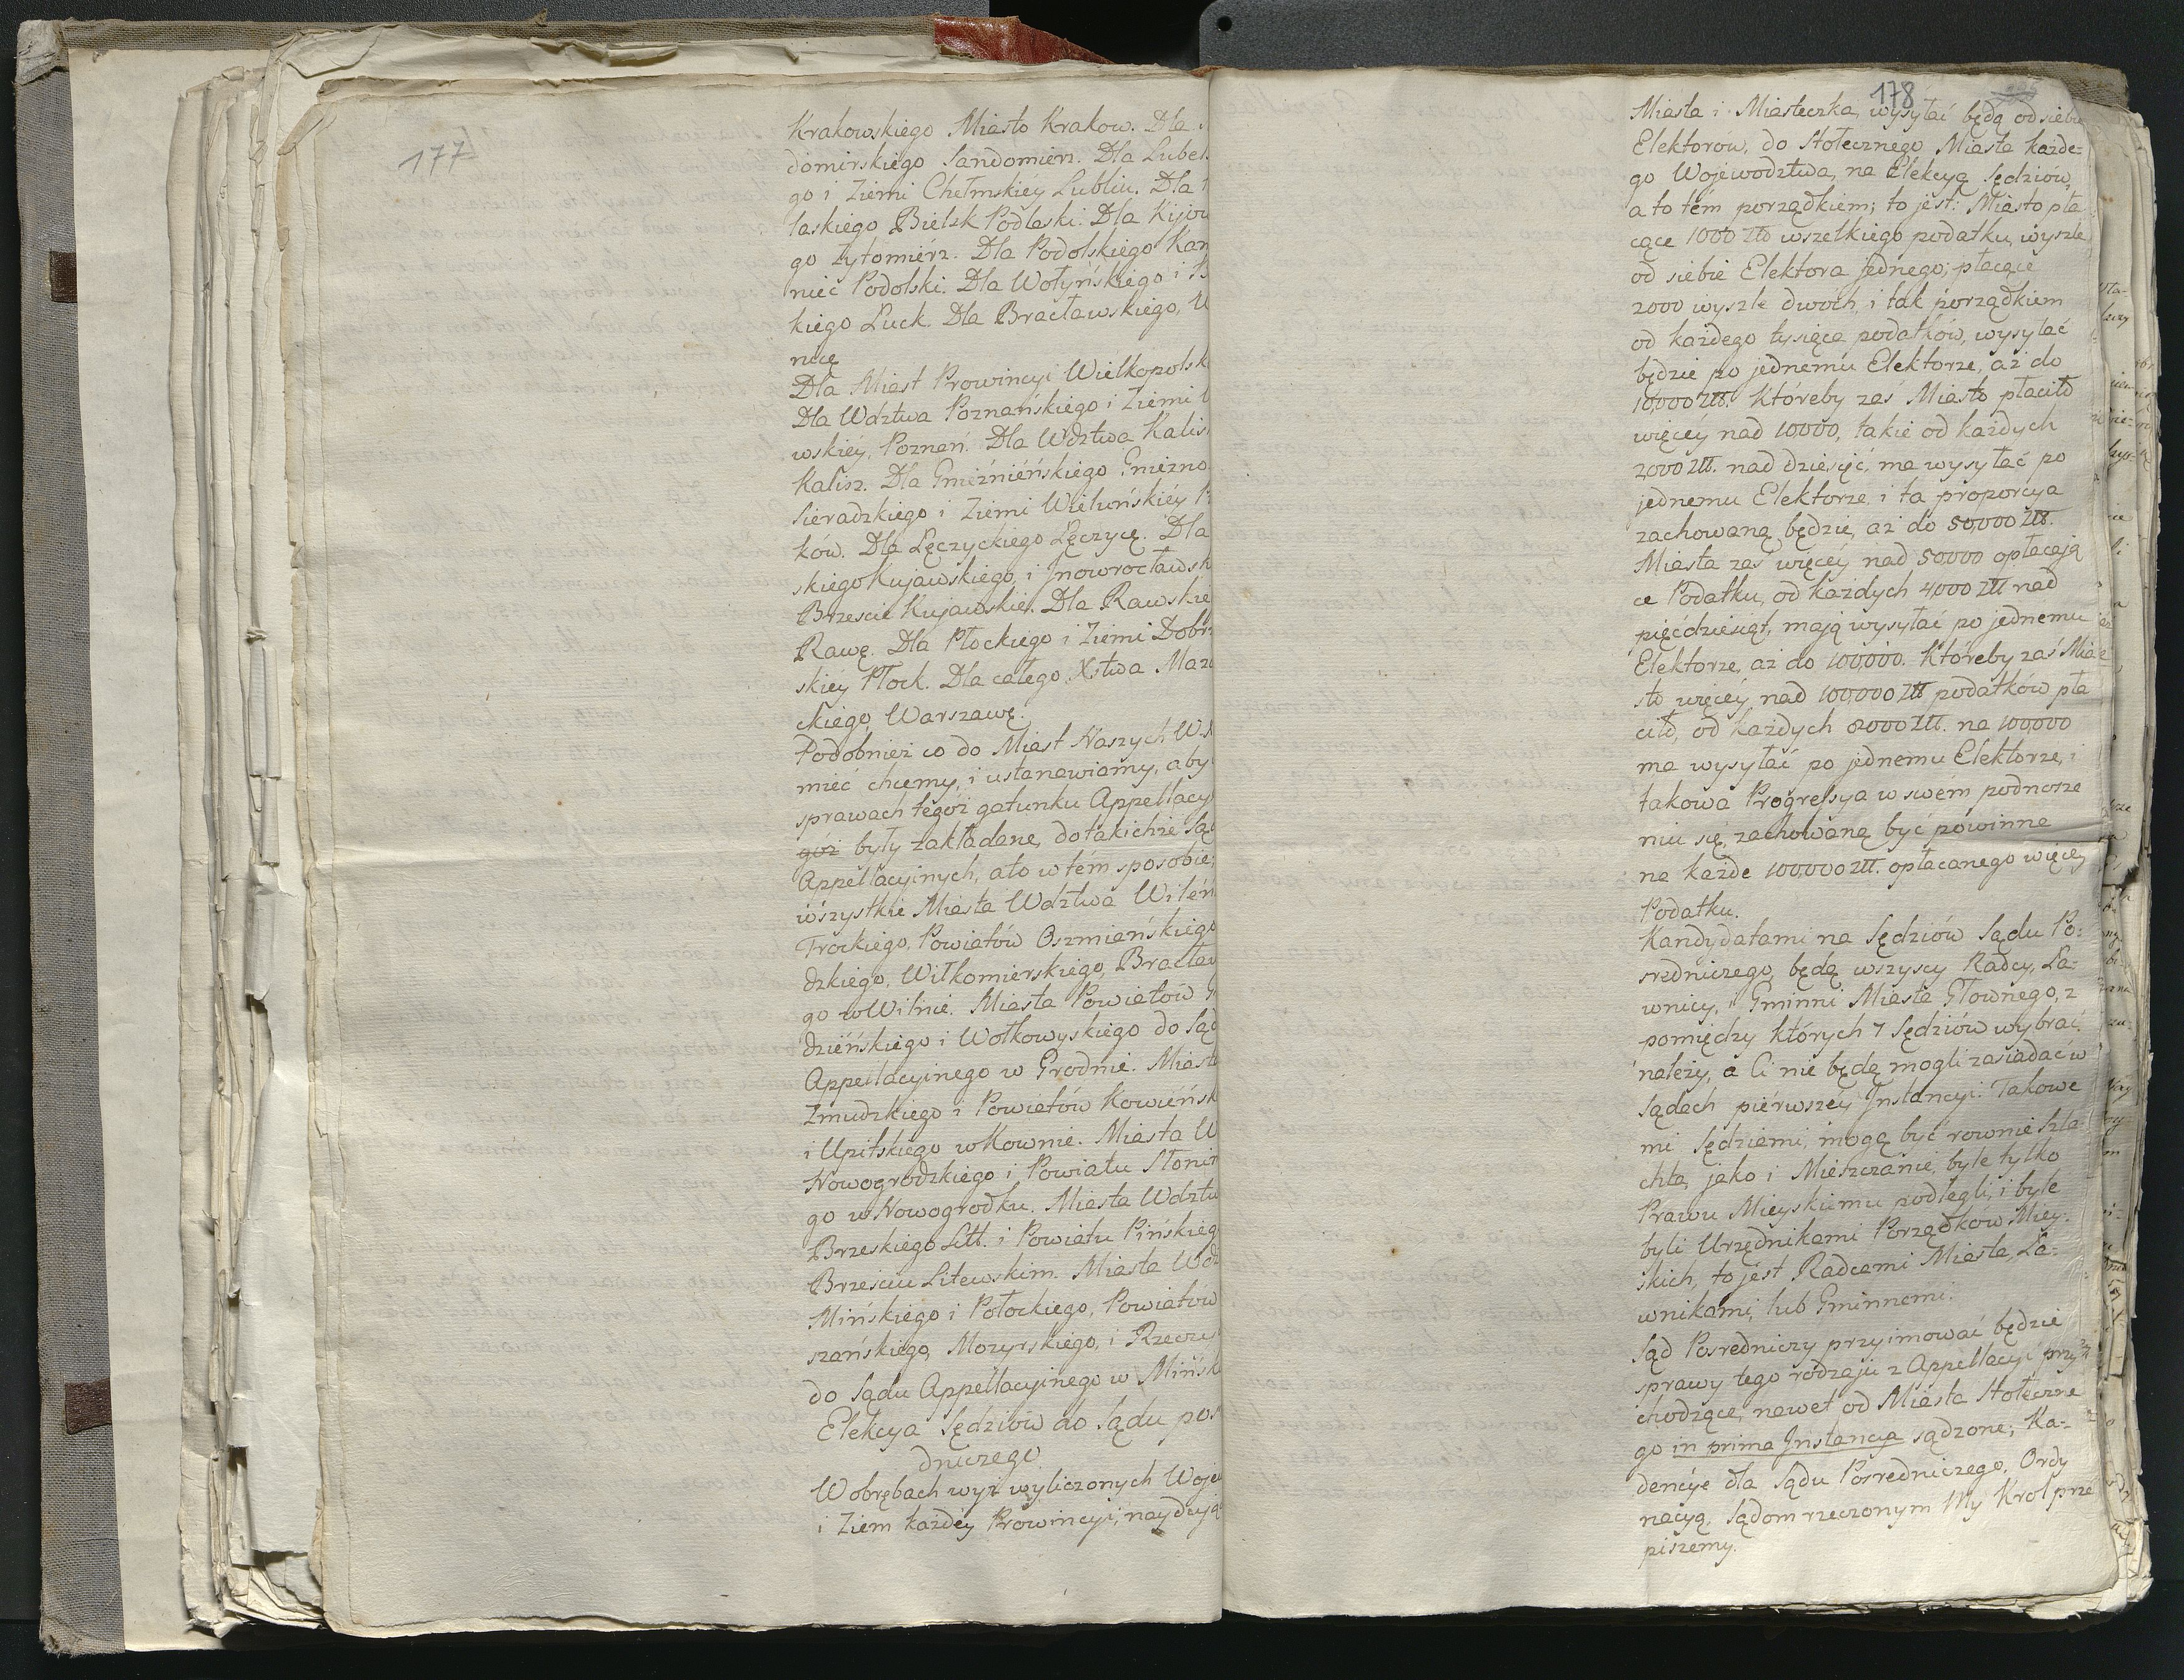 177
Krakowskiego Miasto Krakow. Dla
domirskiego Sandomierz. Dla Lubel
go i Ziemi Chełmskiéy Lublin. Dla
laskiego Bielsk Podlaski. Dla Kijow
go Zytomiérz. Dla Podolskiego Kam
nieć Podolski. Dla Wołyńskiego i
kiego Luck. Dla Bracławskiego, W
nicę
Dla Miast Prowincyi Wielkopolsk
Dla Wdztwa Poznańskiego i Ziemi
wskiéy, Poznań. Dla Wdztwa Kalis
Kalisz. Dla Gnieźnieńskiego Gniezno
Sieradzkiego i Ziemi Wieluńskiéy
ków. Dla Łęczyckiego Łęczycę. Dla
skiego Kujawskiego, i Jnowrocławsk
Brzescie Kujawskie. Dla Rawskie
Rawę. Dla Płockiego i Ziemi Dobrz
skiéy Płock. Dla całego Xstwa Mazo
ckiego, Warszawę.
Podobnież co do Miast Naszych W.
mieć chcemy, i ustanawiamy, aby
sprawach tegóż gatunku Appellacy
góż były zakładane, do takichże Są
Appellacyinych, a to w tem sposobie:
wszystkie Miasta Wdztwa Wileń
Trockiego, Powiatów Oszmiańskiego
dzkiego, Wiłkomierskiego, Bracław
go w Wilnie. Miasta Powiatów
dzieńskiego i Wołkowyskiego do Sąd
Appellacyinego w Grodnie. Miasta
Zmudzkiego i Powiatów Kowieńsk
i Upitskiego w Kownie. Miasta W
Nowogrodzkiego i Powiatu Słonim
go w Nowogrodku. Miasta Wdztw
Brzeskiego Litt. i Powiatu Pińskieg
Brześciu Litewskim. Miasta Wdz
Mińskiego i Połockiego, Powiatów
szańskiego, Mozyrskiego, i Rzeczy
do Sądu Appellacyinego w Mińsk
Elekcya Sędziów do Sądu pos
dniczego.
W obrębach wyż wyliczonych Woje
i Ziem każdéy Prowincyi, naydują
178
Miasta i Miasteczka, wysyłać będą od siebie
Elektorów, do Stołecznego Miasta każde=
go Wojewodztwa, na Elekcyą Sędziow,
a to tém porządkiem; to jest: Miasto pła
cące 1000 Złł wszelkiego podatku, wyszle
od siebie Elektora jednego; płacące
2000 wyszle dwoch, i tak porządkiem
od każdego tysiąca podatków, wysyłać
będzie po jednemu Elektorze, aż do
10,000 Złł. Któreby zaś Miasto płaciło
więcey nad 10000, takie od każdych
2000 Złł. nad dziesięć, ma wysyłać po
jednemu Elektorze i ta proporcya
zachowaną będzie, aż do 50,000 Złł.
Miasta zas więcéy nad 50000 opłacają
ce Podatku, od każdych 4000 Złł nad
pięćdziesiąt, mają wysyłać po jednemu
Elektorze, aż do 100,000. Któreby zaś Mia
sto więcéy nad 100,000 Złł podatków pła
ciło, od każdych 8000 Złł. na 100000
ma wysyłać po jednemu Elektorze, i
takowa Progressya w swém podnosze
niu się, zachowaną być powinna
na każde 100,000 Złł. opłacanego więcey
Podatku.
Kandydatami na Sędziów Sądu Po=
sredniczego, będą wszyscy Radcy, Ła=
wnicy, i Gminni Miasta Głownego, z
pomiędzy których 7 Sędziów wybrać
należy, a Ci nie będą mogli zasiadać w
Sądach piérwszey Jnstancyi. Takowe
mi Sędziami, mogą być rownie Szla=
chta, jako i Mieszczanie, byle tylko
Prawu Mieyskiemu podlegli, i byle
byli Urzędnikami Porządków Miey=
skich, to jest Radcami Miasta, Ła=
wnikami, lub Gminnemi.
Sąd Posredniczy przyimować będzie
sprawy tego rodzaju z Appellacyi przy
chodzące, nawet od Miasta Stołeczne
go in prima Jnstancya sądzone; Ka=
dencye dla Sądu Posredniczego, Ordy
nacyą, Sądom rzeczonym My Krol prze
piszemy.